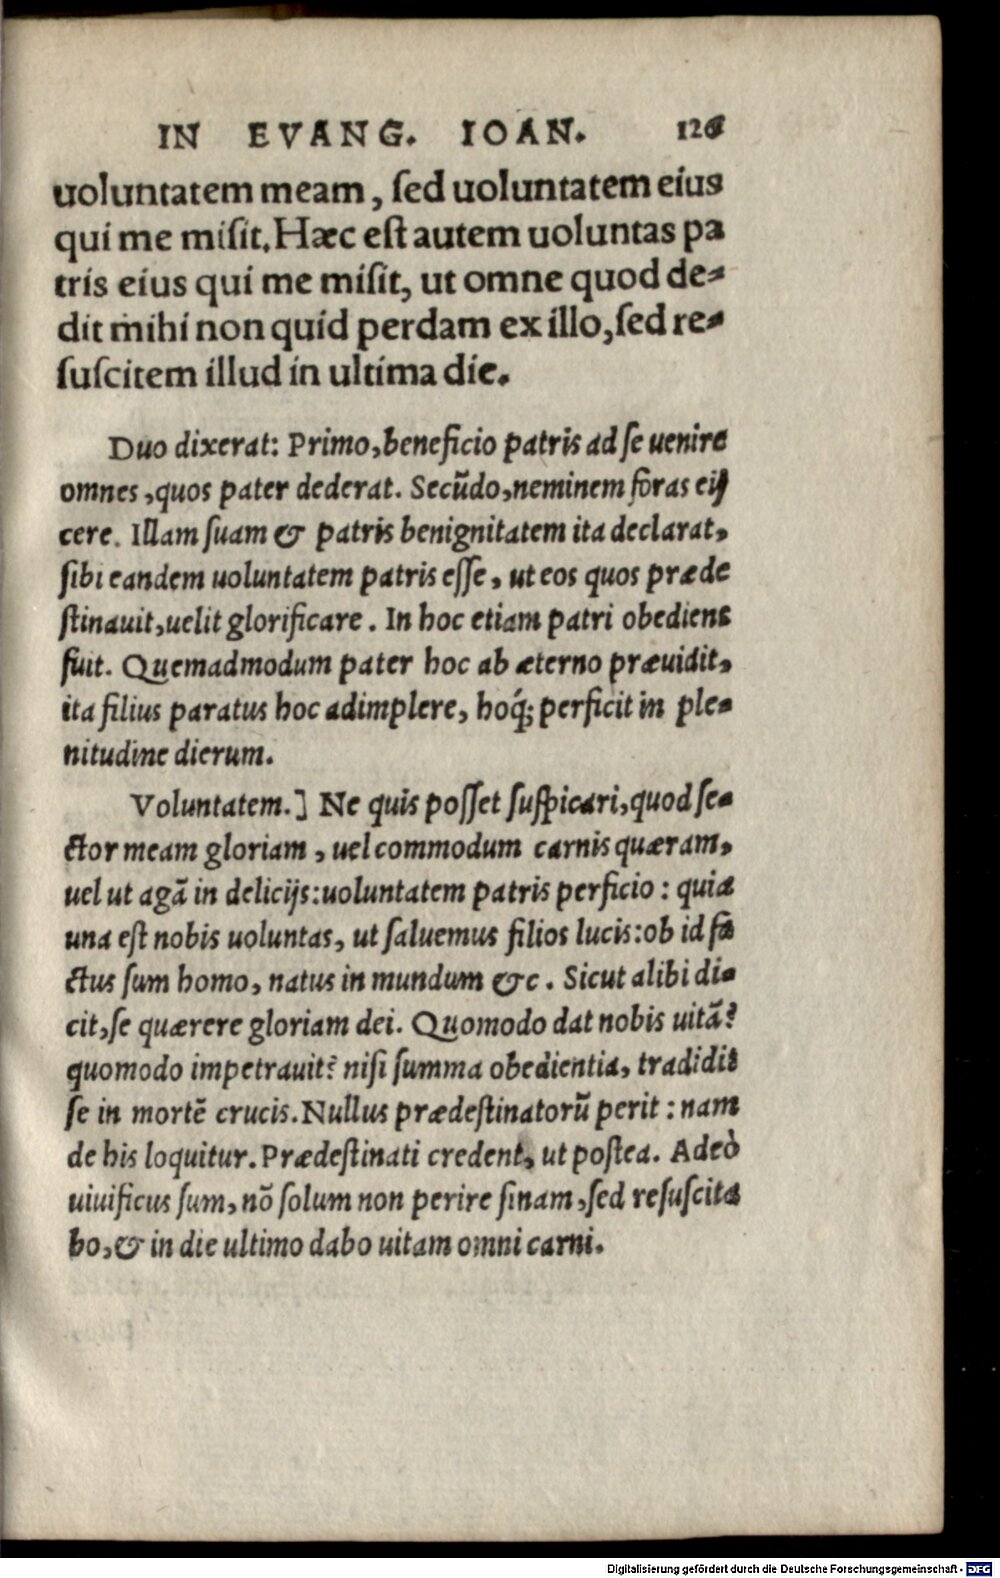 IN EVANG. IOAN. 126
uoluntatem meam, ſed uoluntatem eius
qui me miſit. Hæc eſt autem uoluntas pa
tris eius qui me miſit, ut omne quod de-
dit mihi non quid perdam ex illo, ſed re-
ſuſcitem illud in ultima die.
Duo dixerat: Primo, beneficio patris ad ſe uenire
omnes, quos pater dederat. Secũdo, neminem foras eij
cere. Illam ſuam & patris benignitatem ita declarat,
ſibi eandem uoluntatem patris eſſe, ut eos quos præde
ſtinauit, uelit glorificare. In hoc etiam patri obediens
fuit. Quemadmodum pater hoc ab æterno præuidit,
ita filius paratus hoc adimplere, hoq́; perficit in ple-
nitudine dierum.
Voluntatem.] Ne quis poſſet ſuſpicari, quod ſe-
ctor meam gloriam, uel commodum carnis quæram,
uel ut agã in delicijs: uoluntatem patris perficio: quia
una eſt nobis uoluntas, ut ſaluemus filios lucis: ob id fa
ctus ſum homo, natus in mundum &c. Sicut alibi di-
cit, ſe quærere gloriam dei. Quomodo dat nobis uitã?
quomodo impetrauit? niſi ſumma obedientia, tradidit
ſe in mortẽ crucis. Nullus prædeſtinatorũ perit: nam
de his loquitur. Prædeſtinati credent, ut poſtea. Adeò
uiuificus ſum, nõ ſolum non perire ſinam, ſed reſuſcita
bo, & in die ultimo dabo uitam omni carni.
Digitalisierung gefördert durch die Deutsche Forschungsgemeinschaft - DFG